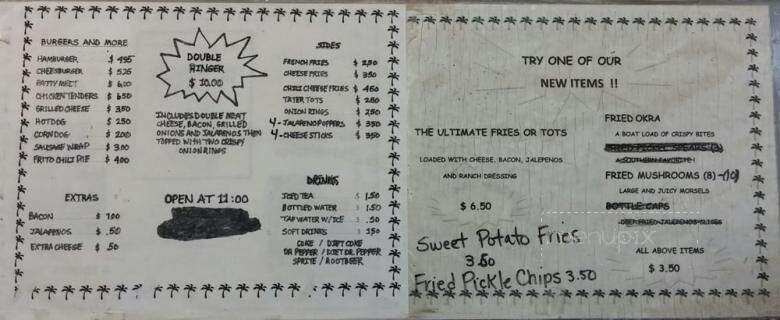 BURGERS AND MORE
HAMBURGER $ 495
CHEESEBURGER $ 525
PATTY MELT $ 600
CHICKEN TENDERS $ 650
GRILLED CHEESE $ 350
HOTDOG $ 250
CORNDOG $ 200
SAUSAGE WRAP $ 300
FRITO CHILI PIE $ 400
EXTRAS
BACON $ 1.00
JALAPENOS $ .50
EXTRA CHEESE $ .50
DOUBLE
RINGER
$ 10.00
INCLUDES DOUBLE MEAT
CHEESE, BACON, GRILLED
ONIONS AND JALAPENOS THEN
TOPPED WITH TWO CRISPY
ONION RINGS
OPEN AT 11:00
SIDES
FRENCH FRIES $ 250
CHEESE FRIES $ 350
CHILI CHEESE FRIES $ 450
TATER TOTS $ 250
ONION RINGS $ 250
4-JALAPENO POPPERS $ 350
4-CHEESE STICKS $ 350
DRINKS
ICED TEA $ 1.50
BOTTLED WATER $ 1.50
TAP WATER W/ICE $ .50
SOFT DRINKS $ 1.50
COKE / DIET COKE
DR PEPPER / DIET DR. PEPPER
SPRITE / ROOTBEER
TRY ONE OF OUR
NEW ITEMS !!
THE ULTIMATE FRIES OR TOTS
LOADED WITH CHEESE, BACON, JALEPENOS
AND RANCH DRESSING
$ 6.50
Sweet Potato Fries
3.50
Fried Pickle Chips 3.50
FRIED OKRA
A BOAT LOAD OF CRISPY BITES
A SOUTHERN FAVORITE !
FRIED MUSHROOMS (8)-(10)
LARGE AND JUICY MORSELS
BOTTLE CAPS
DEEP FRIED JALEPENOS SLICES
ALL ABOVE ITEMS
$ 3.50